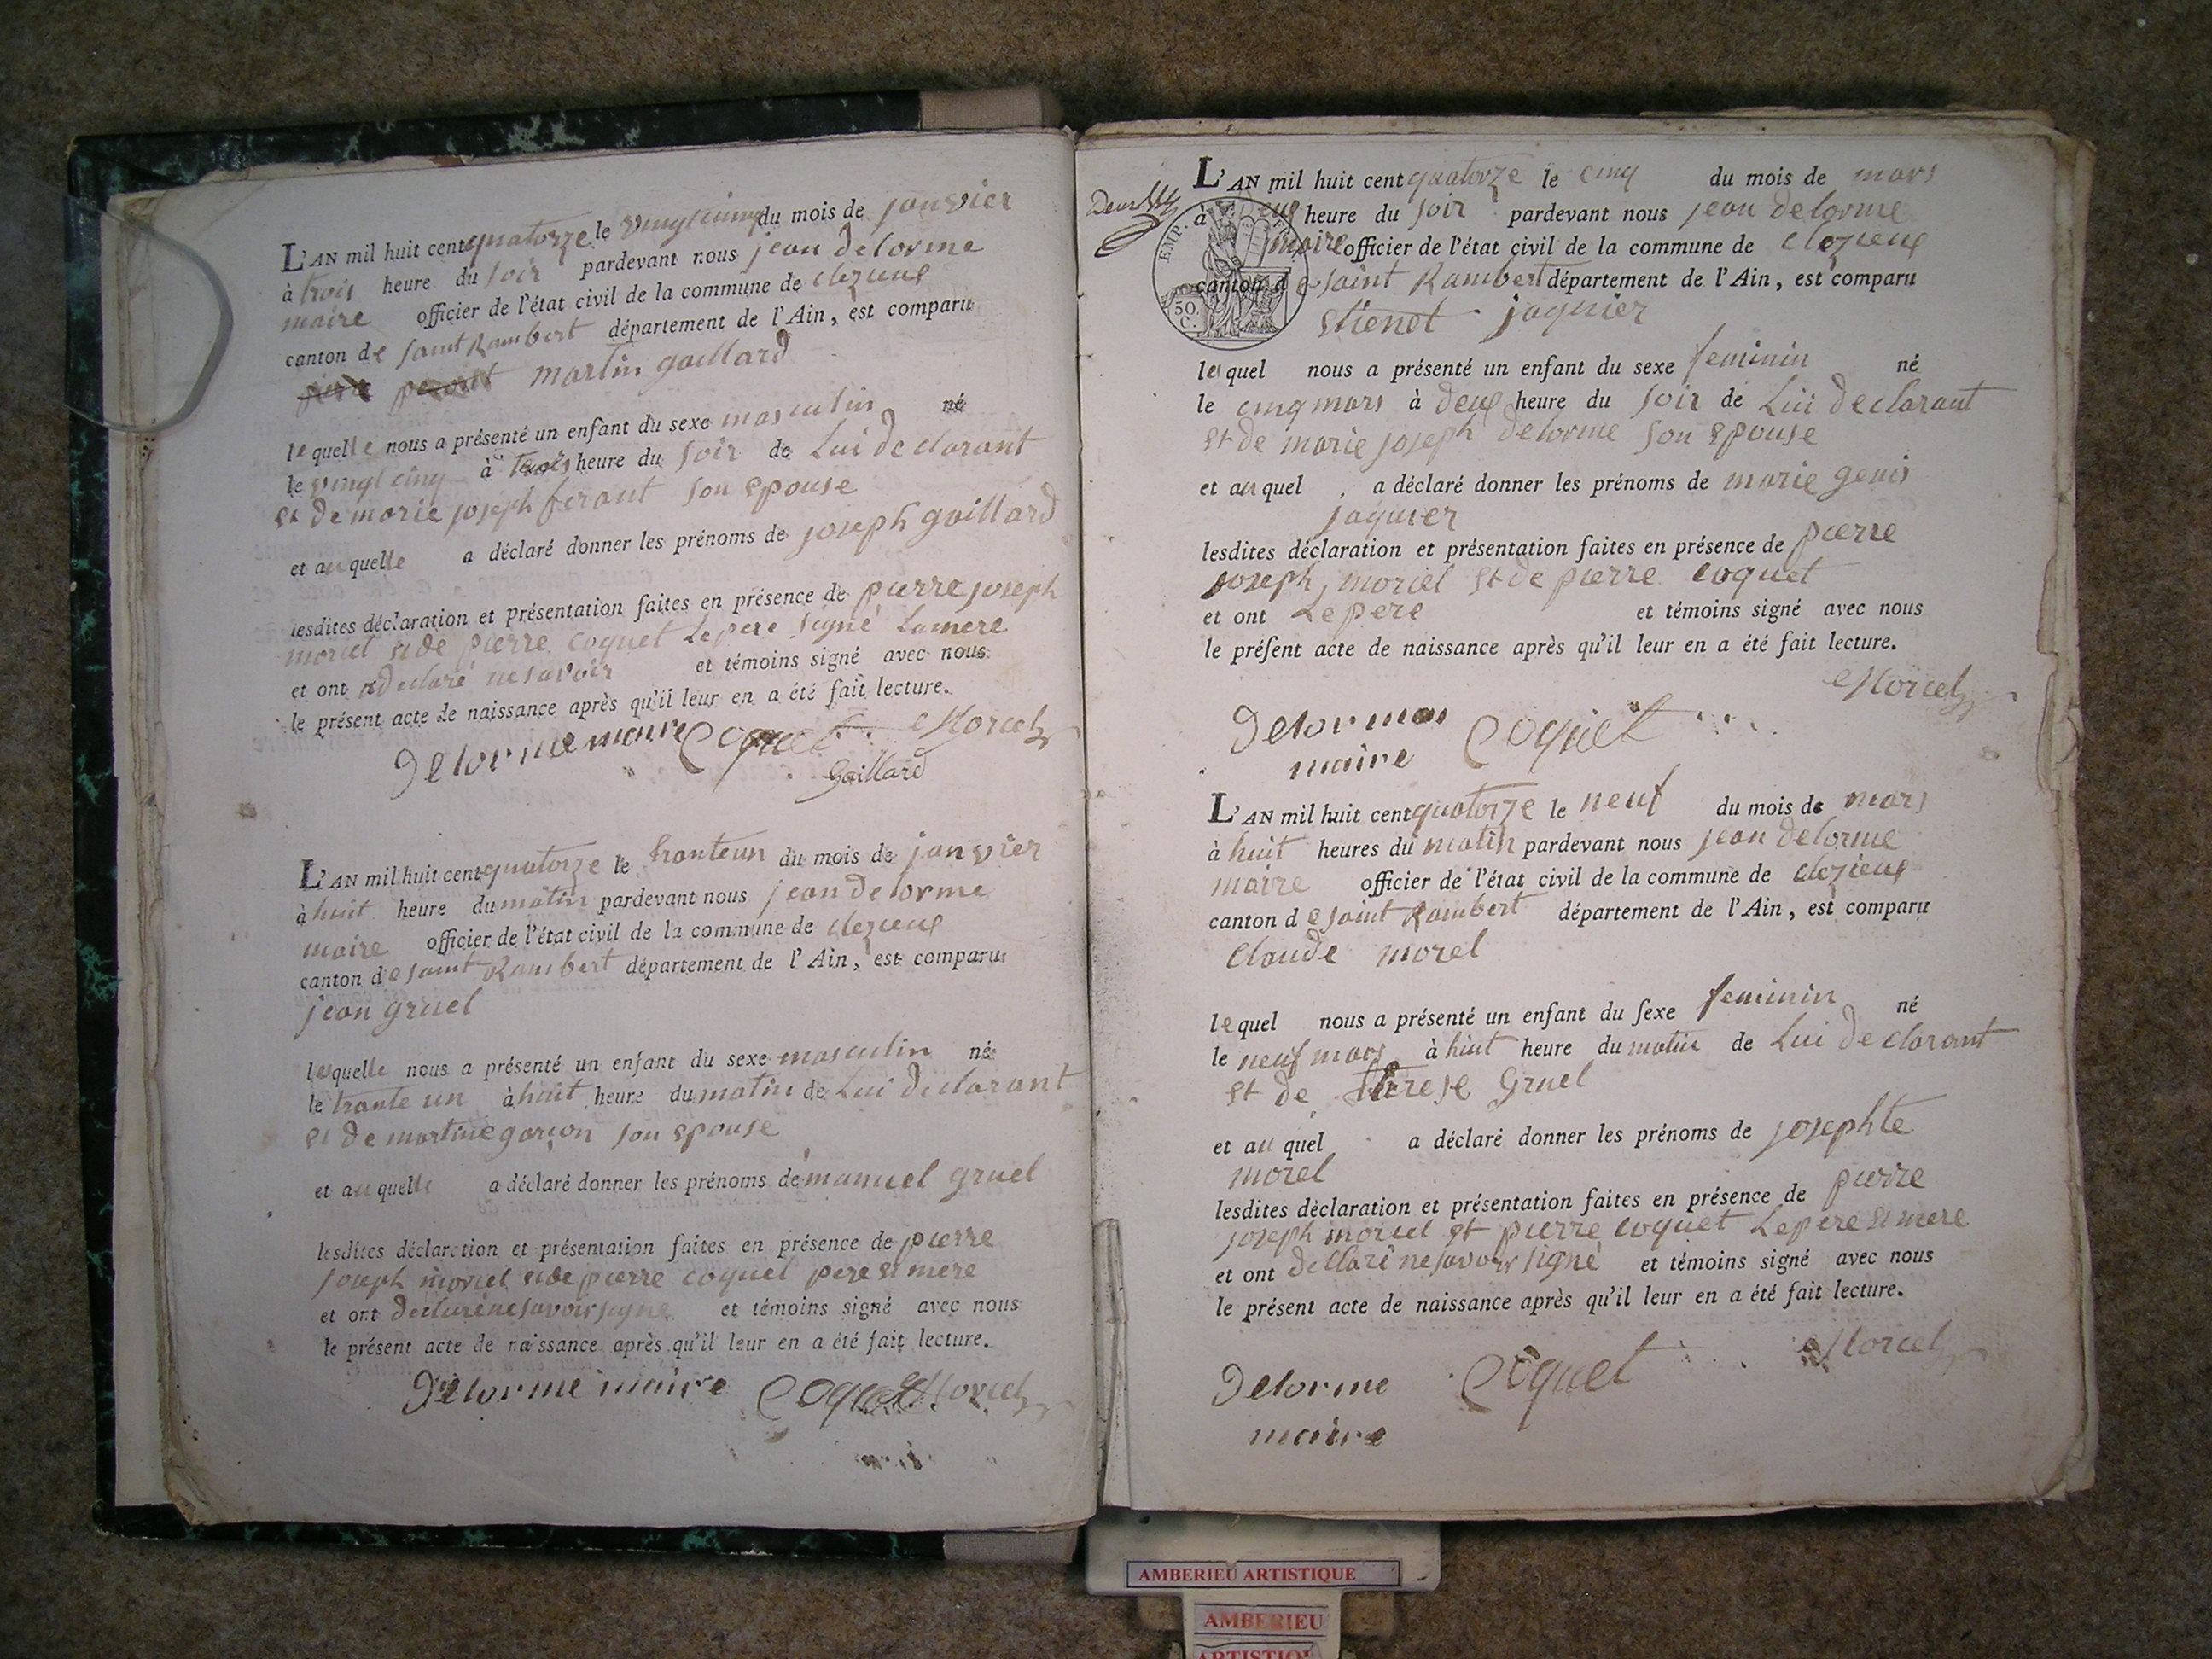 L'AN mil huit cent quatorze le vingt cinq du mois de janvier
à trois heure du soir pardevant nous jean delorme
maire officier de l'état civil de la commune de clezieux
canton de saint Rambert département de l'Ain, est comparu
martin gaillard
lequelle nous a présenté un enfant du sexe masculin né
le vingt cinq à trois heure du soir de Lui declarant
et de marie joseph ferant son epouse
et au quelle a déclaré donner les prénoms de joseph gaillard
lesdites déclaration et présentation faites en présence de pierre joseph
morcel et de pierre coquet Le pere signé La mere
et ont declaré ne savoir et témoins signé avec nous
le présent acte de naissance après qu'il leur en a été fait lecture.
Delorme maire Coquet Morcel
Gaillard
L'AN mil huit cent quatorze le tranteun du mois de janvier
à huit heure du matin pardevant nous jean delorme
maire officier de l'état civil de la commune de clezieux
canton de saint Rambert département de l'Ain, est comparu
jean gruel
lequelle nous a présenté un enfant du sexe masculin né
le trante un à huit heure du matin de Lui declarant
et de martine garçon son epouse
et au quelle a déclaré donner les prénoms de manuel gruel
lesdites déclaration et présentation faites en présence de pierre
joseph morcel et de pierre coquet pere et mere
et ont declaré ne savoir signe et témoins signé avec nous
le présent acte de naissance après qu'il leur en a été fait lecture.
Delorme maire Coquet Morcel
L'AN mil huit cent quatorze le cinq du mois de mars
à deux heure du soir pardevant nous jean delorme
maire officier de l'état civil de la commune de clezieux
canton de saint Rambert département de l'Ain, est comparu
EMP. FR.
50. C.
etienet jaquier
lequel nous a présenté un enfant du sexe feminin né
le cinq mars à deux heure du soir de Lui declarant
et de marie joseph delorme son epouse
et au quel a déclaré donner les prénoms de marie genis
jaquier
lesdites déclaration et présentation faites en présence de pierre
joseph morcel et de pierre coquet
et ont Le pere et témoins signé avec nous
le présent acte de naissance après qu'il leur en a été fait lecture.
Morcel
Delorme Coquet
maire
L'AN mil huit cent quatorze le neuf du mois de mars
à huit heures du matin pardevant nous jean delorme
maire officier de l'état civil de la commune de clezieux
canton de saint Rambert département de l'Ain, est comparu
Claude morel
lequel nous a présenté un enfant du sexe feminin né
le neuf mars à huit heure du matin de Lui declarant
et de terese Gruel
et au quel a déclaré donner les prénoms de josephte
morel
lesdites déclaration et présentation faites en présence de pierre
joseph morcel et pierre coquet Le pere et mere
et ont declaré ne savoir signé et témoins signé avec nous
le présent acte de naissance après qu'il leur en a été fait lecture.
Delorme Coquet Morcel
maire
AMBERIEU ARTISTIQUE
AMBERIEU
ARTISTIQUE